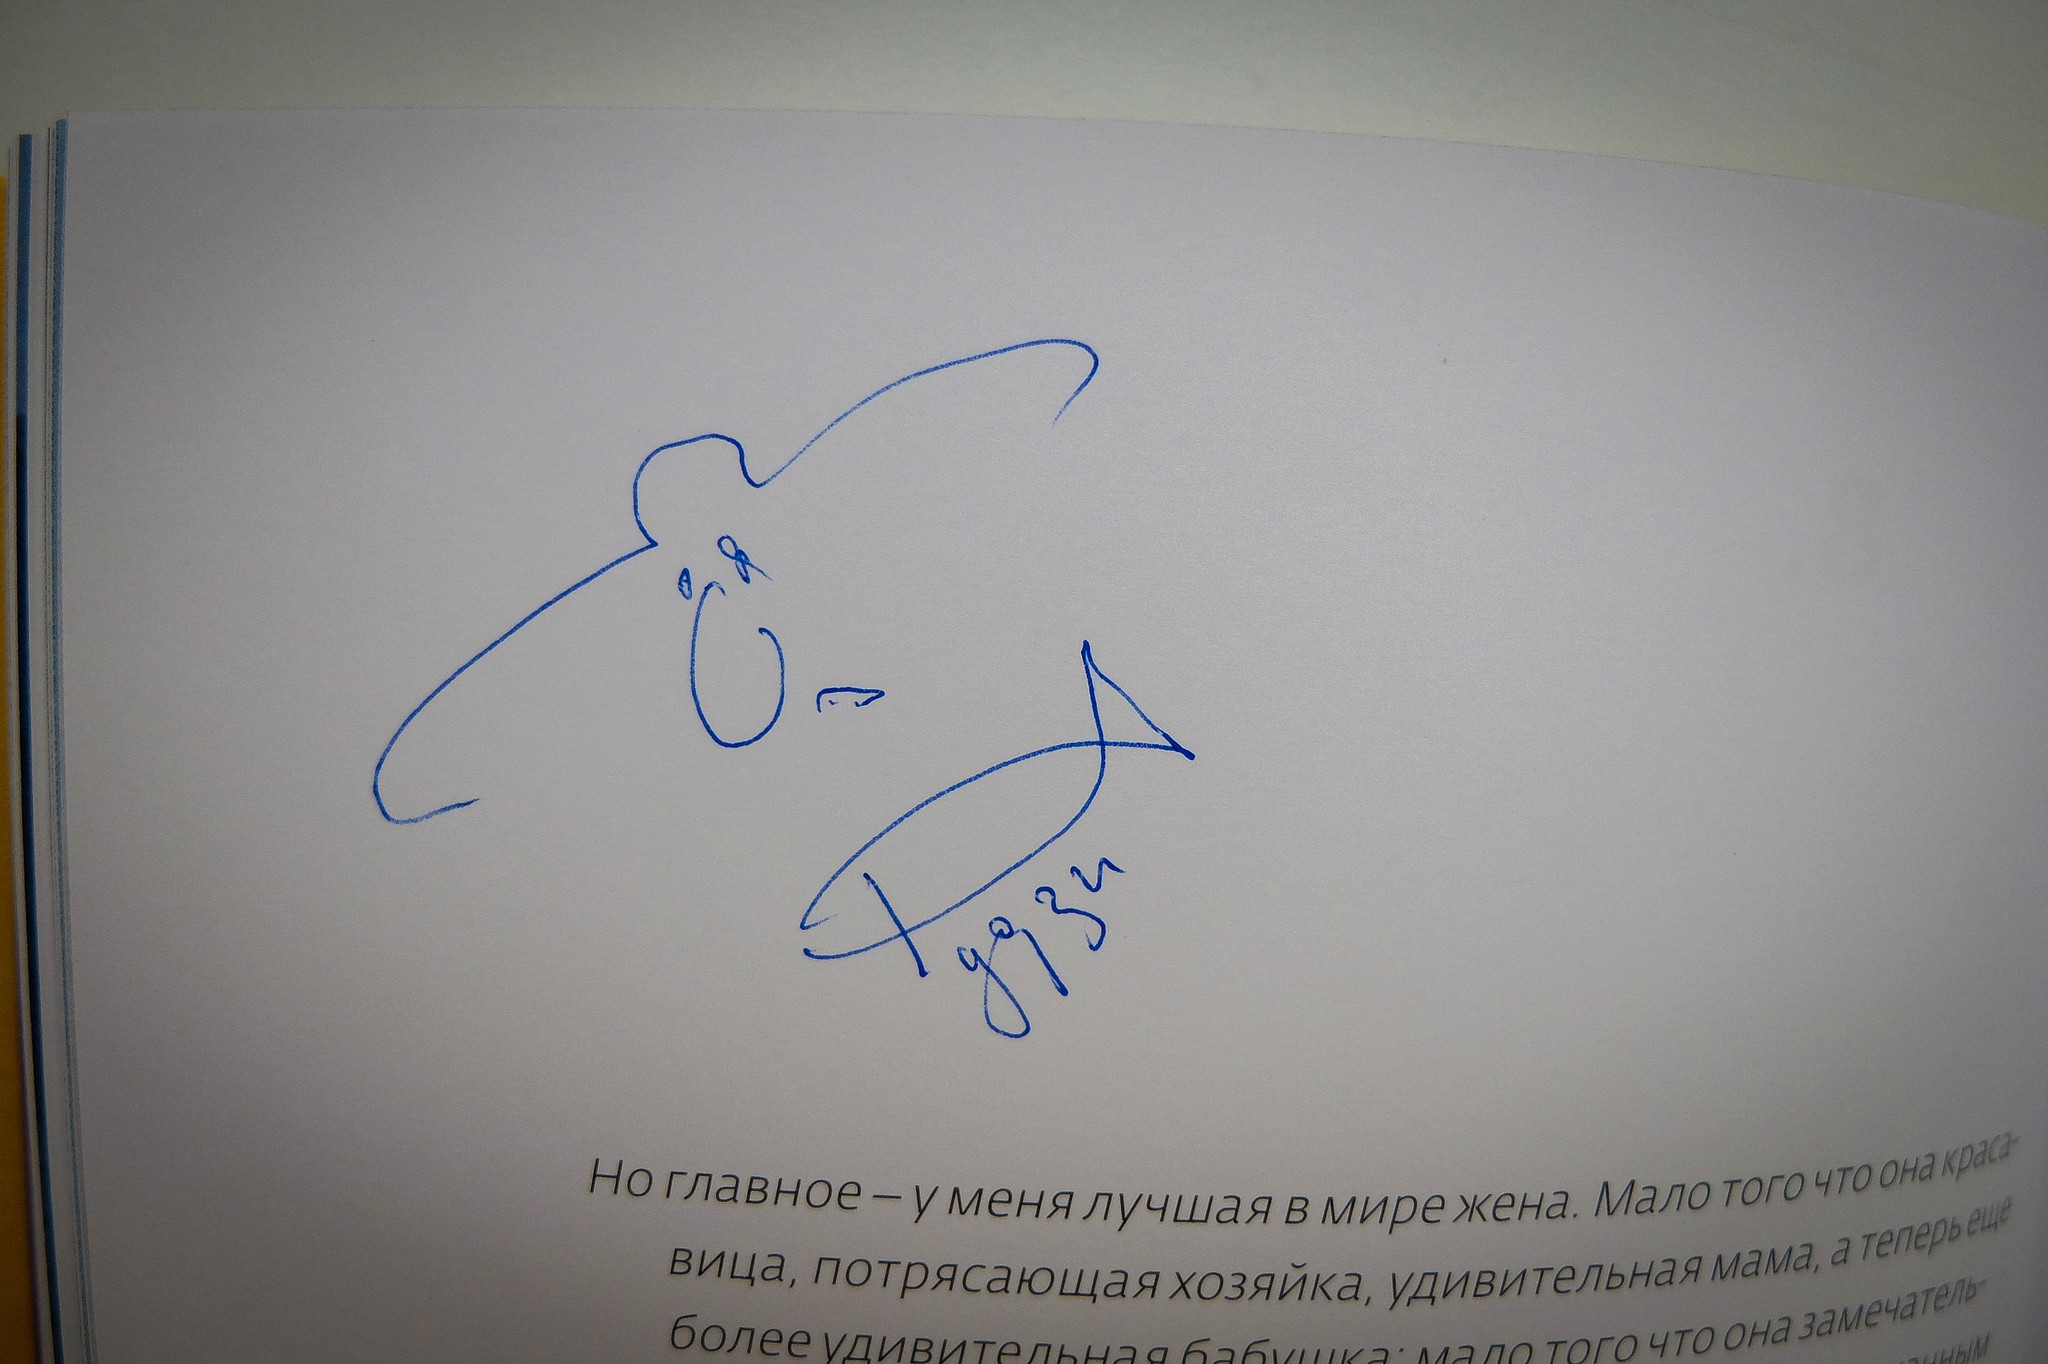 Рудзи
Но главное – у меня лучшая в мире жена. Мало того что она краса-
вица, потрясающая хозяйка, удивительная мама, а теперь еще
более удивительная бабушка; мало того что она замечатель-